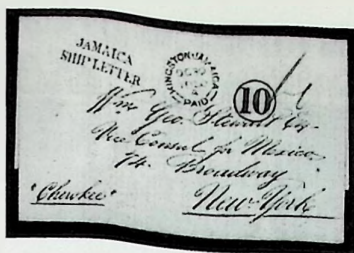 JAMAICA
SHIP LETTER
KINGSTON-JAMAICA
PAID
10
Wm. Geo. Stewart Esq
Vice Consul for Mexico
74. Broadway
"Cherokee"
New York